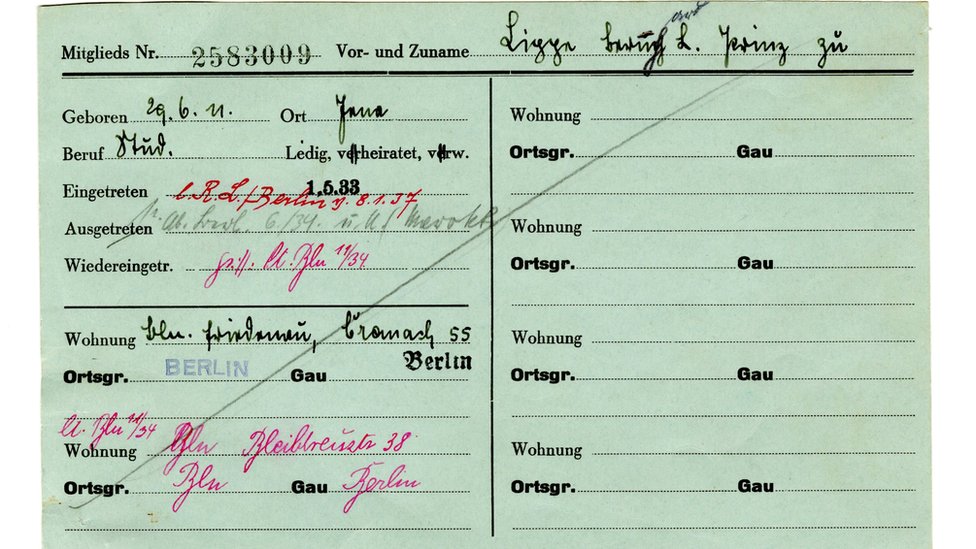 Mitglieds Nr. 2583009 Vor- und Zuname Lippe Bernh ard L. Prinz zu
Geboren 29.6.11. Ort Jena
Beruf Stud. Ledig, verheiratet, verw.
Eingetreten 1.5.33
l. R.L./Berlin v. 8.1.37
Ausgetreten 6./34. u.
Wiedereingetr. lt. Bln 11/34
Wohnung Bln. Friedenau, Cranach 55
Ortsgr. BERLIN Gau Berlin
lt. Bln 11/34
Wohnung Bln Bleibtreustr 38
Ortsgr. Bln Gau Berlin
Wohnung
Ortsgr. Gau
Wohnung
Ortsgr. Gau
Wohnung
Ortsgr. Gau
Wohnung
Ortsgr. Gau